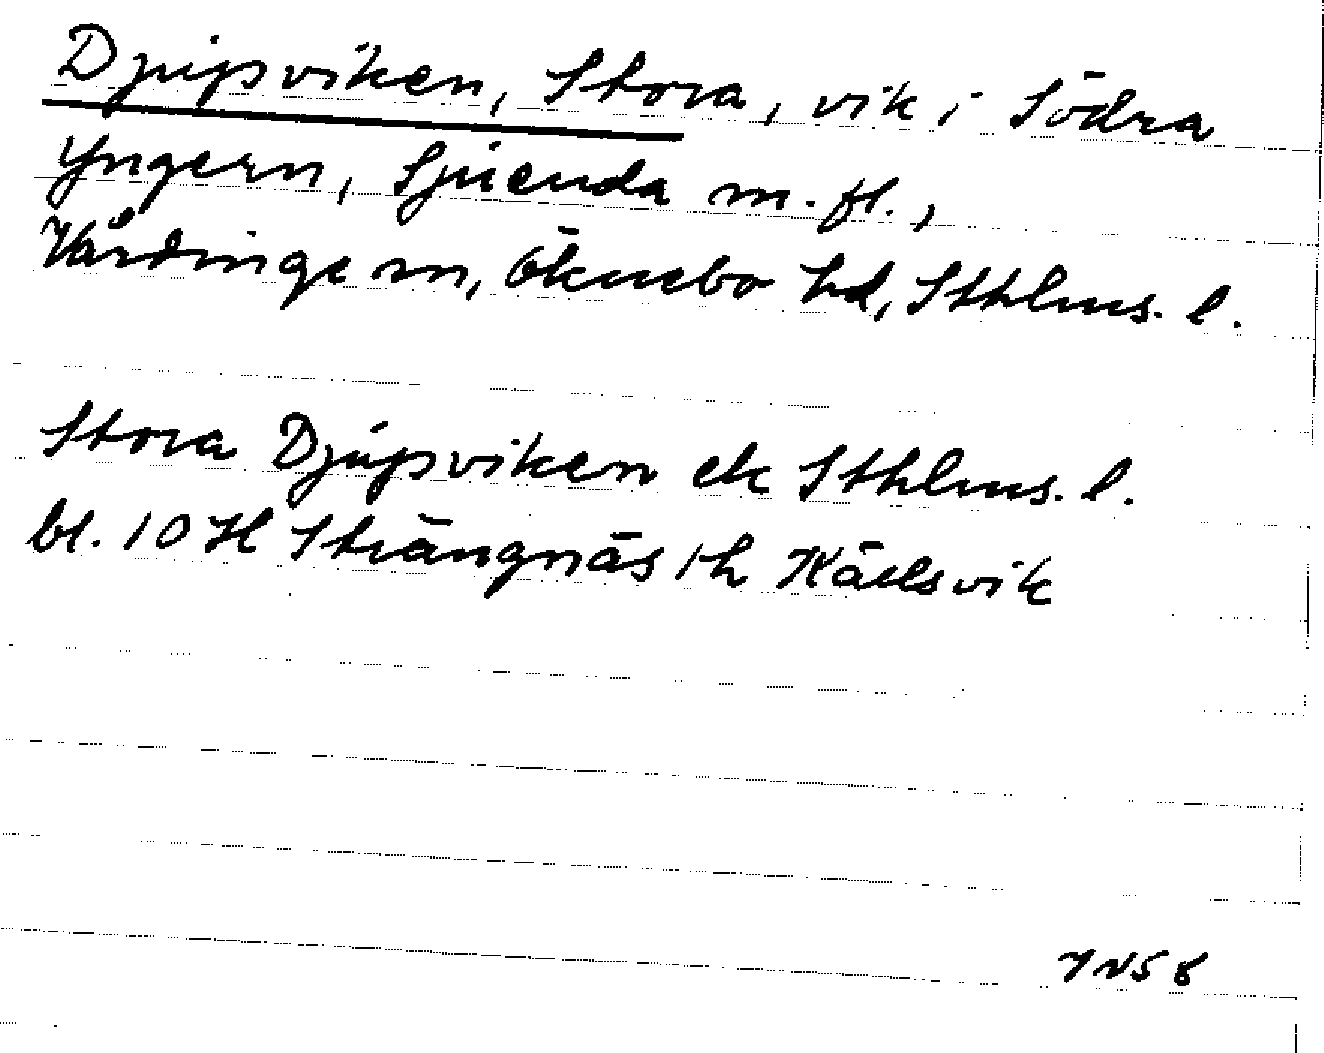 Djupviken, Stora, vik i Södra
Yngern, Sjuenda m.fl.,
Vårdinge sn, Öknebo hd, Sthlms. l.
Stora Djupviken ek Sthlms. l.
bl. 10 H Strängnäs th Källsvik